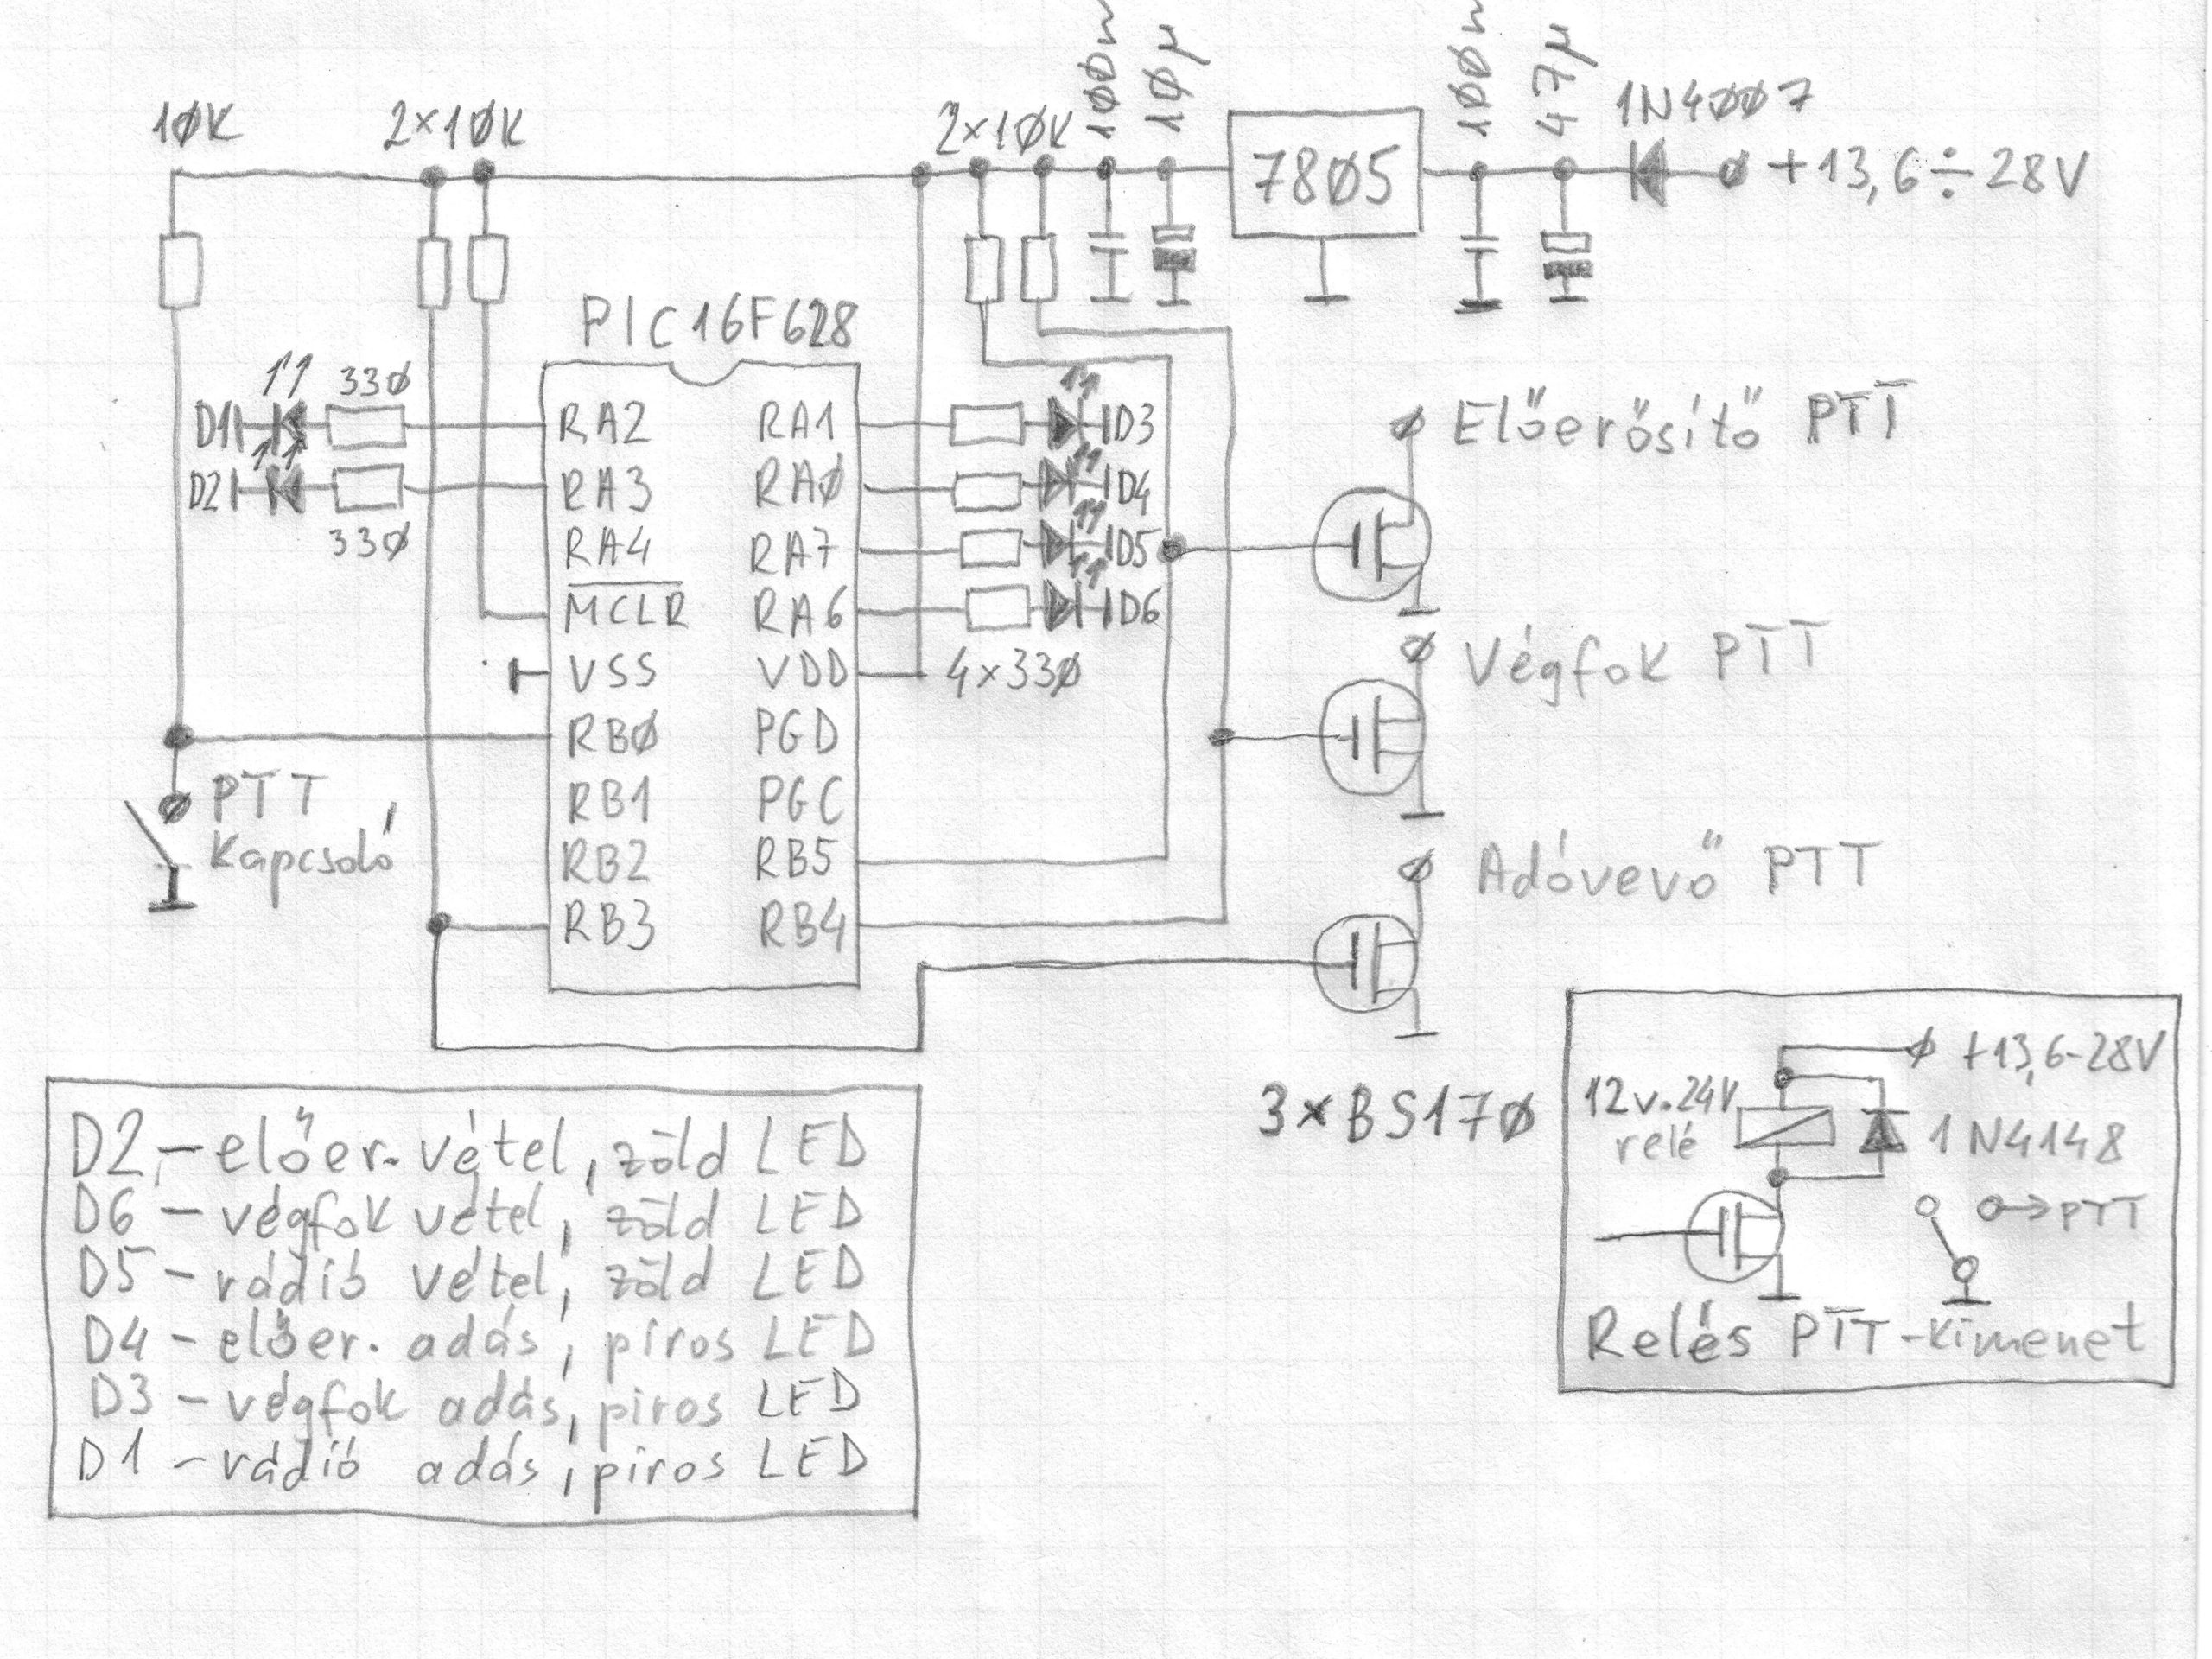 10K
2x10K
2x10K
100n
10µ
7805
100n
47µ
1N4007
+13,6÷28V
PIC16F628
330
D1
D2
330
RA2
RA3
RA4
MCLR
VSS
RB0
RB1
RB2
RB3
RA1
RA0
RA7
RA6
VDD
PGD
PGC
RB5
RB4
D3
D4
D5
D6
4x330
PTT
Kapcsoló
Előerősítő PTT
Végfok PTT
Adóvevő PTT
3xBS170
+13,6-28V
12v.24V
relé
1N4148
PTT
Relés PTT-kimenet
D2 - előer. vétel, zöld LED
D6 - végfok vétel, zöld LED
D5 - rádió vétel, zöld LED
D4 - előer. adás, piros LED
D3 - végfok adás, piros LED
D1 - rádió adás, piros LED